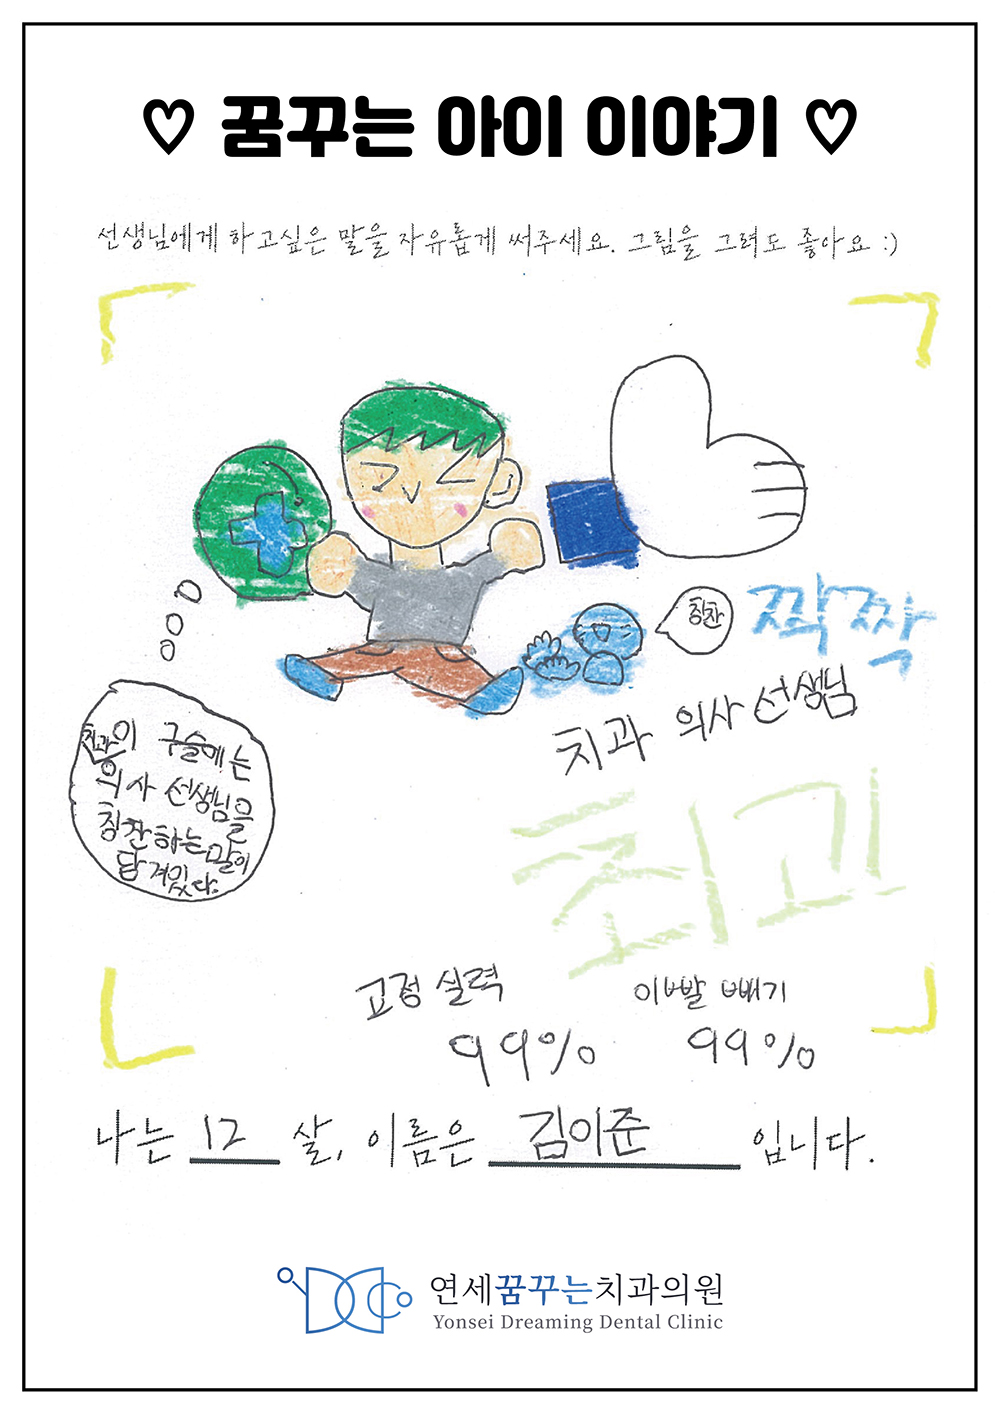 ♡ 꿈꾸는 아이 이야기 ♡
선생님에게 하고싶은 말을 자유롭게 써주세요. 그림을 그려도 좋아요 :)
칭찬
짝짝
치과 의사 선생님
치과
이 구슬에는
의사 선생님을
칭찬하는 말이
담겨있다.
최고
교정 실력
99%
이빨 빼기
99%
나는 12 살, 이름은 김이준 입니다.
연세꿈꾸는치과의원
Yonsei Dreaming Dental Clinic